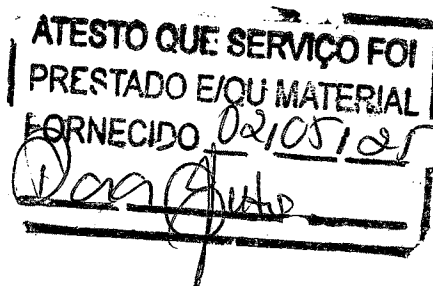 ATESTO QUE SERVIÇO FOI
PRESTADO E/OU MATERIAL
FORNECIDO 02/05/25